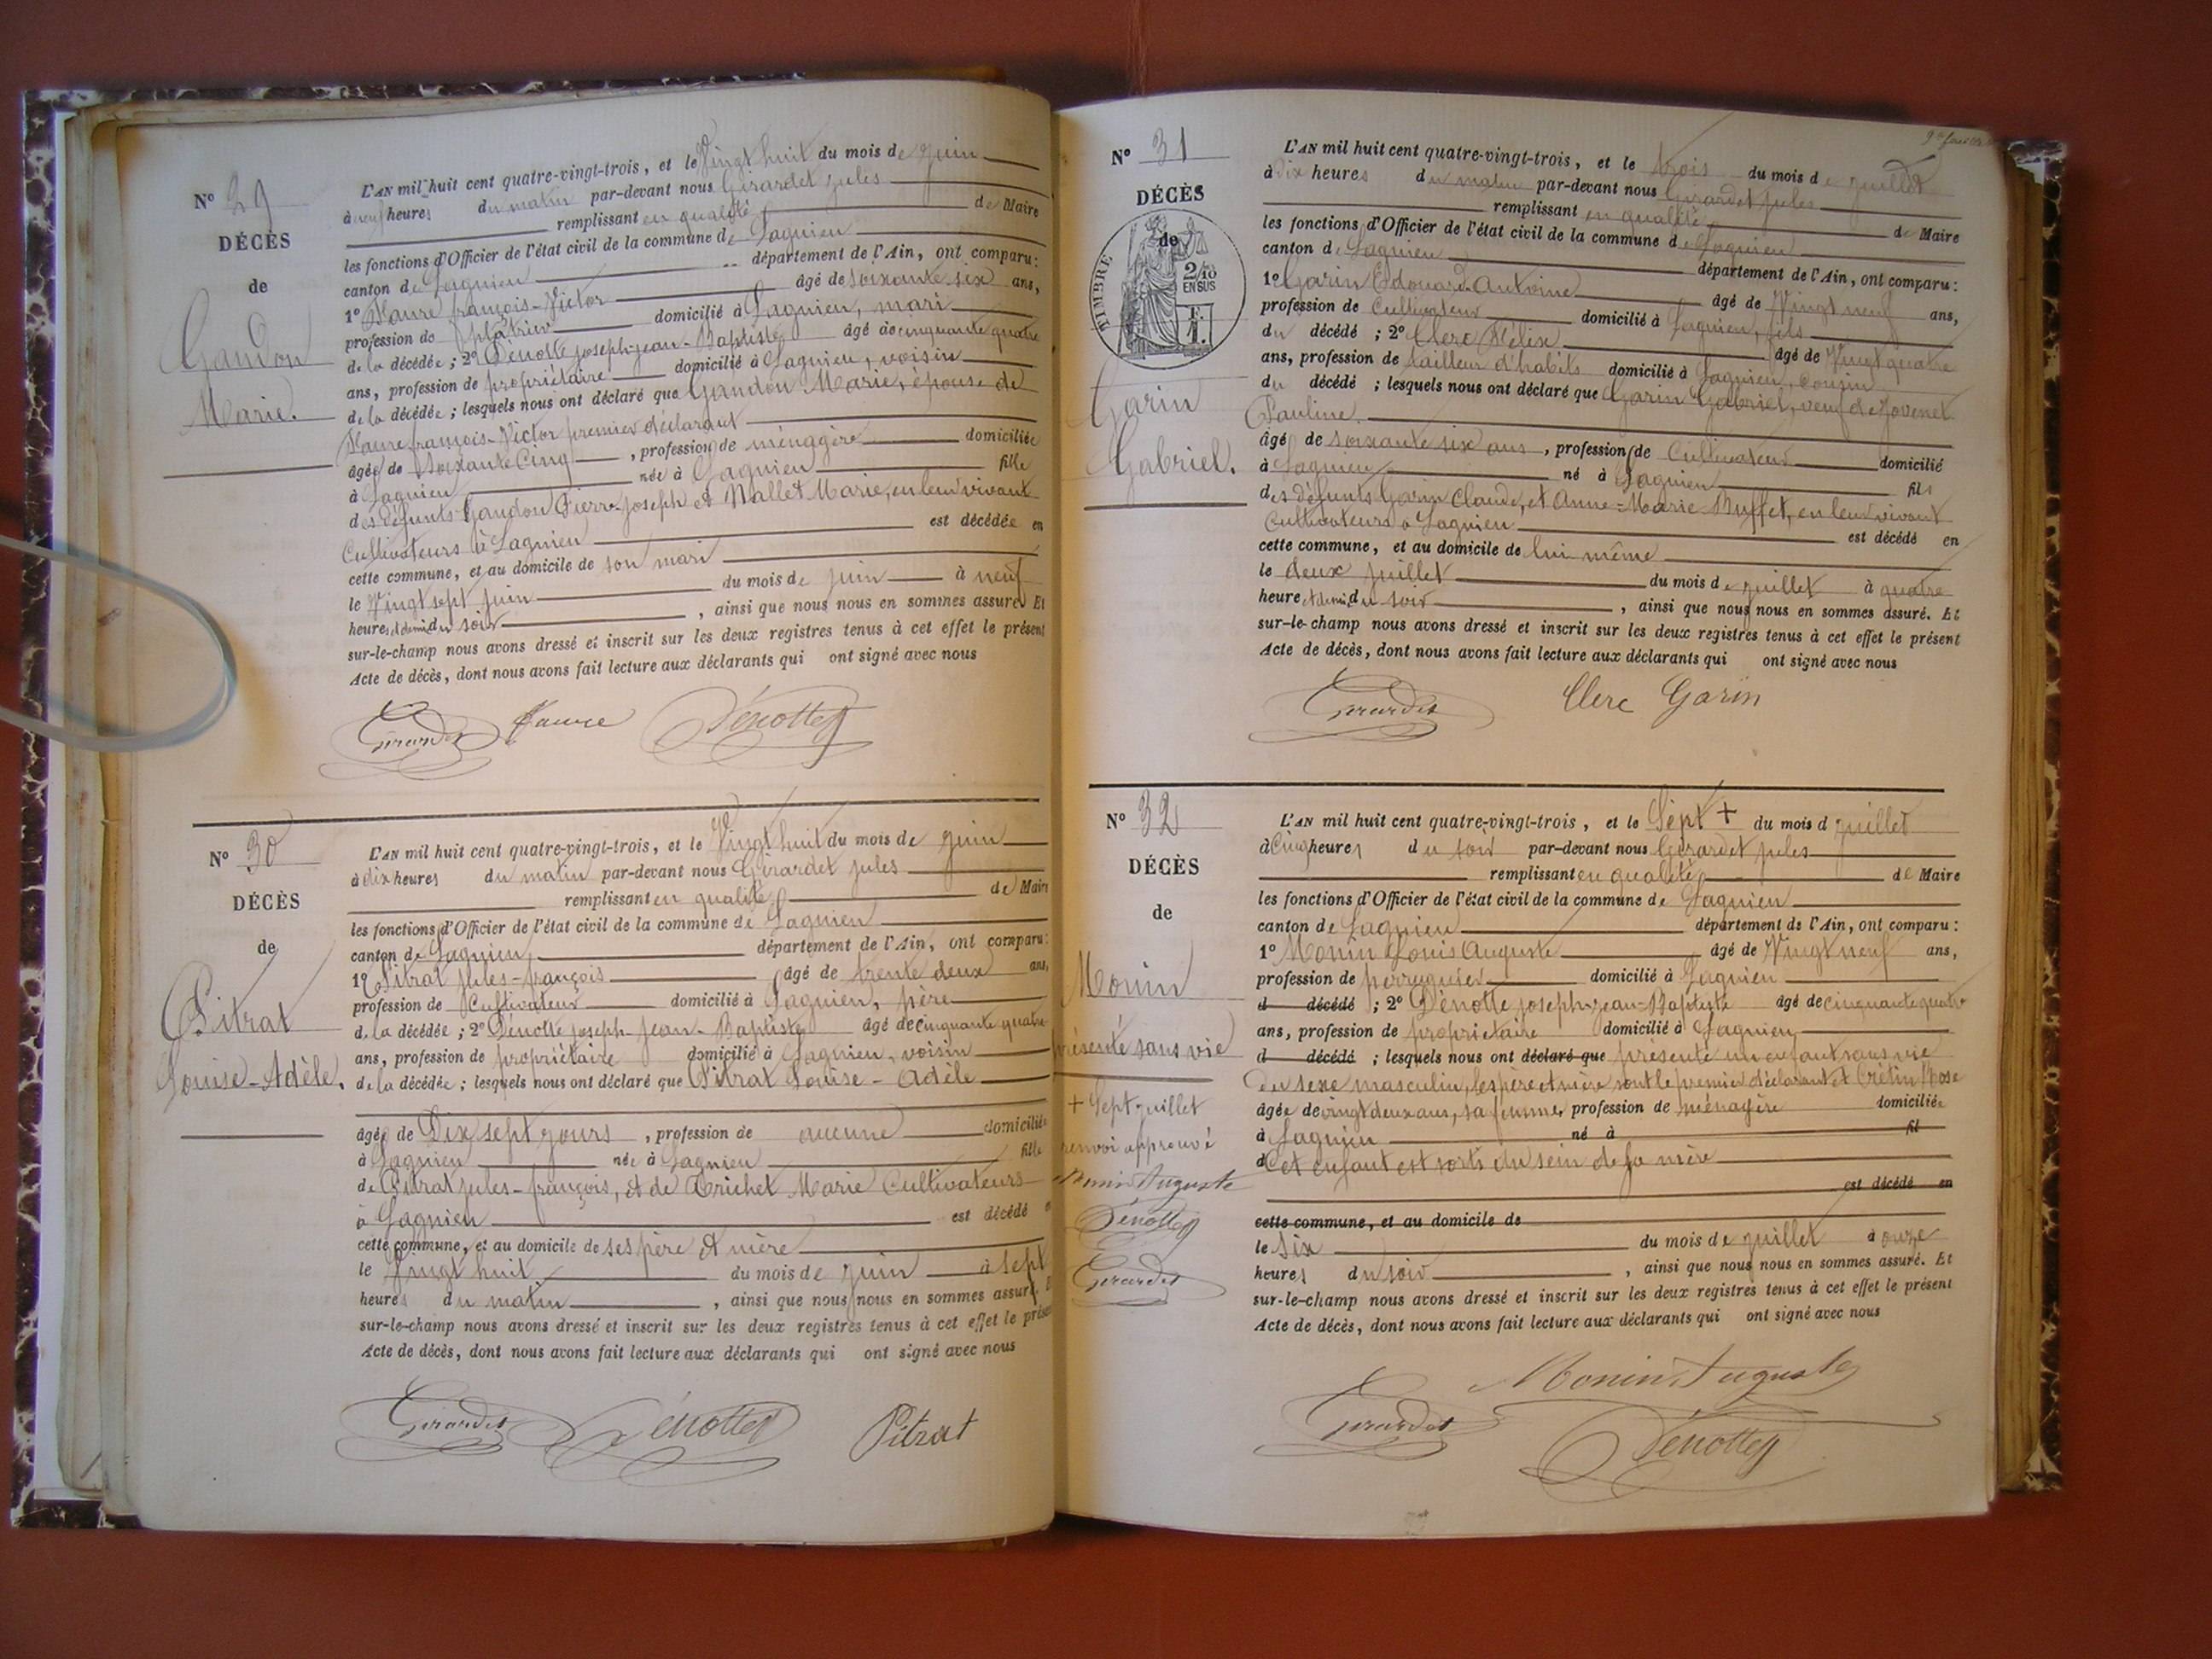 N° 29
DÉCÈS
de
Gandon
Marie.
L'AN mil huit cent quatre-vingt-trois, et le Vingt huit du mois de juin
à neuf heures du matin par-devant nous Girardet jules
remplissant en qualité de Maire
les fonctions d'Officier de l'état civil de la commune de Lagnieu
canton de Lagnieu département de l'Ain, ont comparu:
1° Faure françois-Victor âgé de soixante six ans,
profession de plâtrier domicilié à Lagnieu, mari
de la décédée; 2° Dénotte joseph-jean-Baptiste âgé de cinquante quatre
ans, profession de propriétaire domicilié à Lagnieu, voisin
de la décédée; lesquels nous ont déclaré que Gandon Marie, épouse de
Faure françois-Victor premier déclarant
âgée de soixante Cinq, profession de ménagère domiciliée
à Lagnieu née à Lagnieu fille
des défunts Gandon Pierre-joseph et Mallet Marie, en leur vivant
Cultivateurs à Lagnieu est décédée en
cette commune, et au domicile de son mari
le Vingt sept juin du mois de juin à neuf
heures et demi du soir, ainsi que nous nous en sommes assuré Et
sur-le-champ nous avons dressé et inscrit sur les deux registres tenus à cet effet le présent
Acte de décès, dont nous avons fait lecture aux déclarants qui ont signé avec nous
Girardet Faure Dénotte
N° 30
DÉCÈS
de
Pitrat
Louise-Adèle.
L'AN mil huit cent quatre-vingt-trois, et le Vingt huit du mois de juin
à dix heures du matin par-devant nous Girardet jules
remplissant en qualité de Maire
les fonctions d'Officier de l'état civil de la commune de Lagnieu
canton de Lagnieu département de l'Ain, ont comparu:
1° Pitrat jules-françois âgé de trente deux ans,
profession de Cultivateur domicilié à Lagnieu, père
de la décédée; 2° Dénotte joseph-jean-Baptiste âgé de cinquante quatre
ans, profession de propriétaire domicilié à Lagnieu, voisin
de la décédée; lesquels nous ont déclaré que Pitrat Louise-Adèle
âgée de Dix sept jours, profession de aucune domiciliée
à Lagnieu née à Lagnieu fille
de Pitrat jules-françois, et de Trichet Marie Cultivateurs
à Lagnieu est décédé
cette commune, et au domicile de ses père et mère
le Vingt huit du mois de juin à sept
heures du matin, ainsi que nous nous en sommes assuré.
sur-le-champ nous avons dressé et inscrit sur les deux registres tenus à cet effet le présent
Acte de décès, dont nous avons fait lecture aux déclarants qui ont signé avec nous
Girardet Dénotte Pitrat
N° 31
DÉCÈS
de
TIMBRE
2/10
EN SUS
Garin
Gabriel.
L'AN mil huit cent quatre-vingt-trois, et le trois du mois de juillet
à Dix heures du matin par-devant nous Girardet jules
remplissant en qualité de Maire
les fonctions d'Officier de l'état civil de la commune de Lagnieu
canton de Lagnieu département de l'Ain, ont comparu:
1° Garin Edouard-Antoine âgé de Vingt neuf ans,
profession de Cultivateur domicilié à Lagnieu, fils
du décédé; 2° Clerc Félix âgé de Vingt quatre
ans, profession de tailleur d'habits domicilié à Lagnieu, Cousin
du décédé; lesquels nous ont déclaré que Garin Gabriel, veuf de Jovenet
Pauline
âgé de soixante six ans, profession de Cultivateur domicilié
à Lagnieu né à Lagnieu fils
des défunts Garin Claude, et Anne-Marie Buffet, en leur vivant
Cultivateurs à Lagnieu est décédé en
cette commune, et au domicile de lui même
le deux juillet du mois de juillet à quatre
heure et demi du soir, ainsi que nous nous en sommes assuré. Et
sur-le-champ nous avons dressé et inscrit sur les deux registres tenus à cet effet le présent
Acte de décès, dont nous avons fait lecture aux déclarants qui ont signé avec nous
Girardet Clerc Garin
N° 32
DÉCÈS
de
Monin
présenté sans vie
+ Sept juillet
renvoi approuvé
Monin Auguste
Dénotte
Girardet
L'AN mil huit cent quatre-vingt-trois, et le Sept + du mois d juillet
à Cinq heures du soir par-devant nous Girardet jules
remplissant en qualité de Maire
les fonctions d'Officier de l'état civil de la commune de Lagnieu
canton de Lagnieu département de l'Ain, ont comparu:
1° Monin Louis Auguste âgé de Vingt neuf ans,
profession de perruquier domicilié à Lagnieu
d décédé; 2° Dénotte joseph-jean-Baptiste âgé de cinquante quatre
ans, profession de propriétaire domicilié à Lagnieu
d décédé; lesquels nous ont déclaré que présenté un enfant sans vie
du sexe masculin, les père et mère sont le premier déclarant et Crétin Rose
âgée de vingt deux ans, sa femme, profession de ménagère domiciliée
à Lagnieu né à fil
d Cet enfant est sorti du sein de sa mère
est décédé en
cette commune, et au domicile de
le Six du mois de juillet à onze
heures du soir, ainsi que nous nous en sommes assuré. Et
sur-le-champ nous avons dressé et inscrit sur les deux registres tenus à cet effet le présent
Acte de décès, dont nous avons fait lecture aux déclarants qui ont signé avec nous
Girardet Monin Auguste
Dénotte